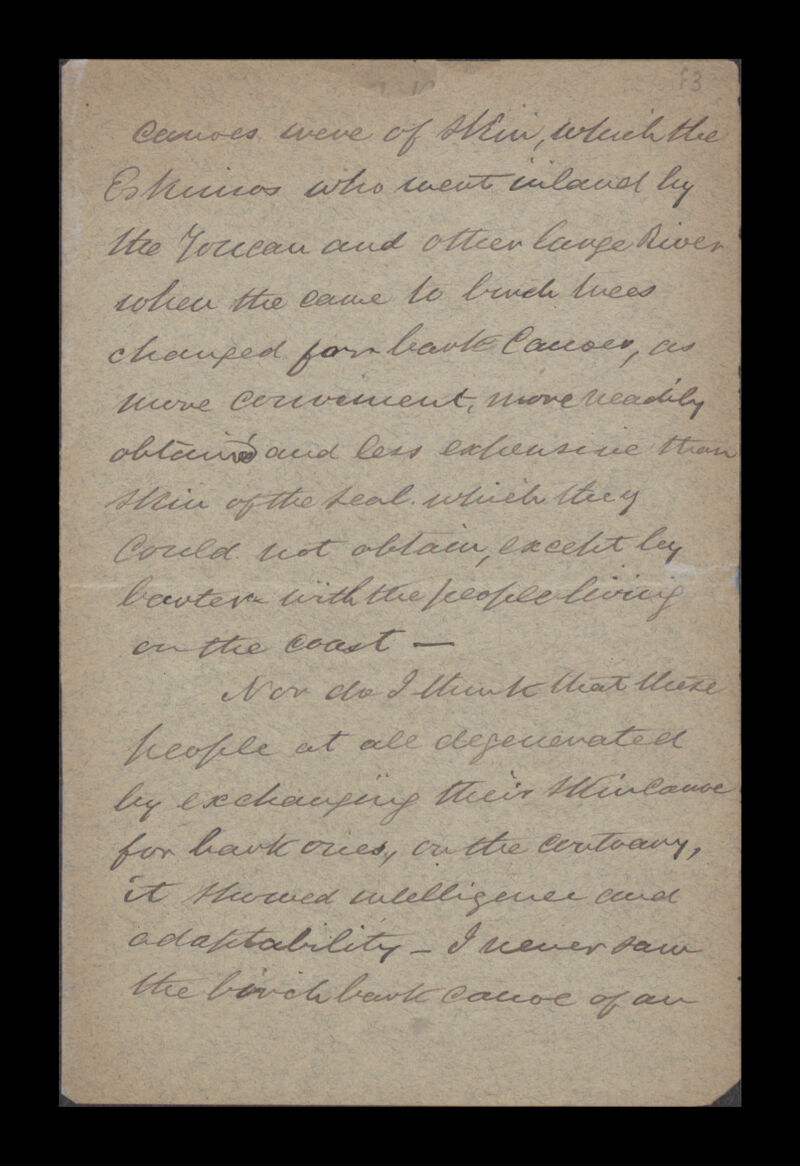 F3
Canoes were of skin, which the
Eskimos who went inland by
the Youcan and other large River
when the came to birch trees
changed for bark Canoes, as
more convenient, more readily
obtained and less expensive than
skin of the seal which they
Could not obtain, except by
barter with the people living
on the coast —
Nor do I think that these
people at all degenerated
by exchanging their skin Canoe
for bark ones, on the contrary,
it showed intelligence and
adaptability — I never saw
the birch bark canoe of an